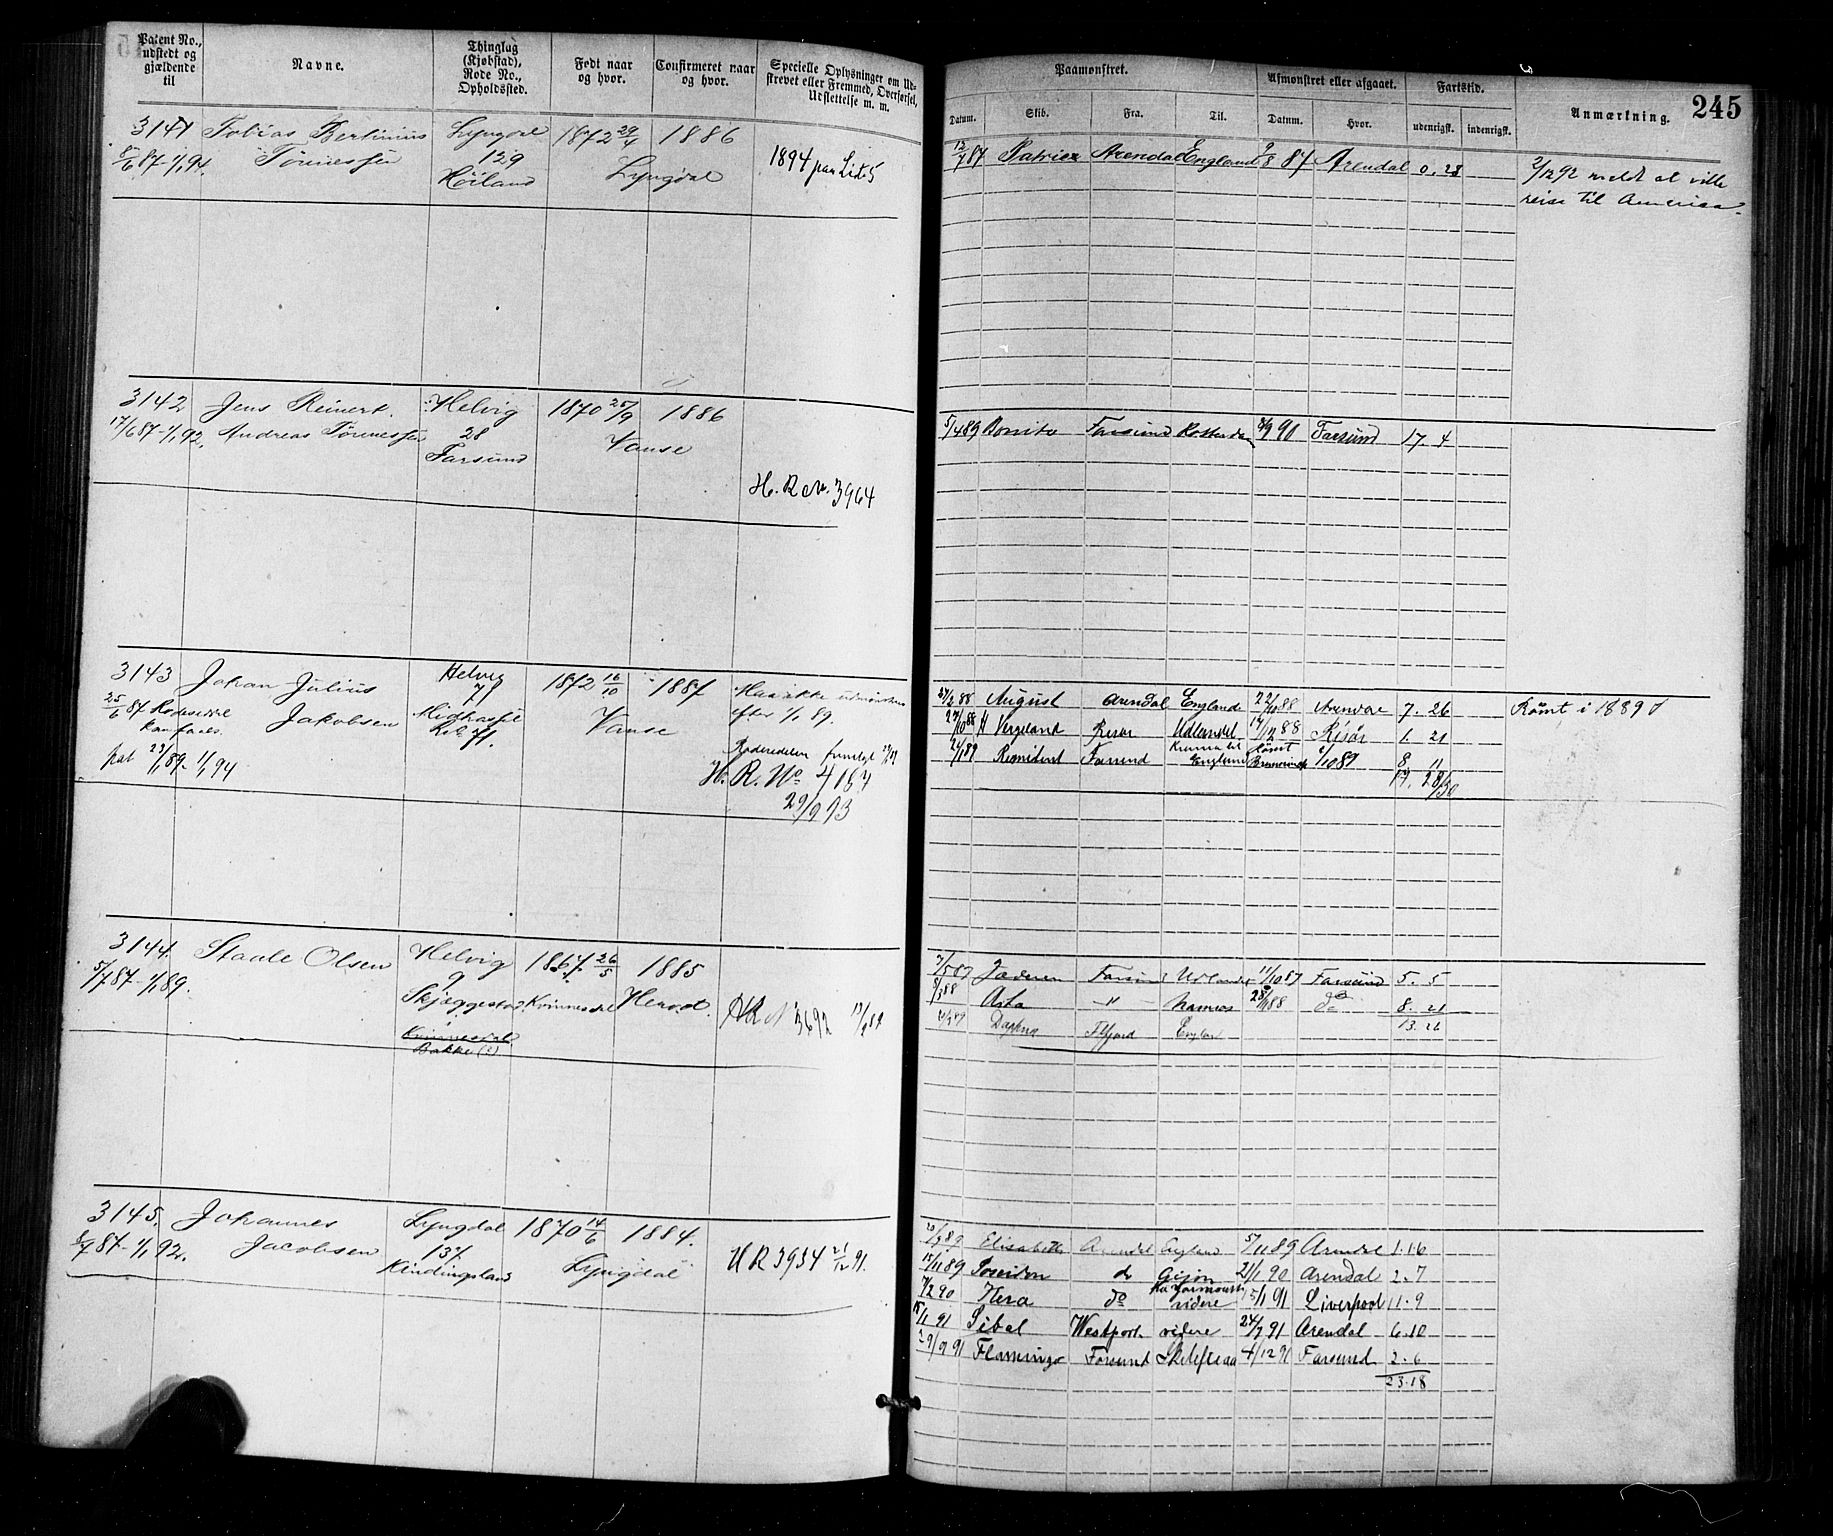 Patent No., udstedt og gjældende til
Navne.
Thinglag (Kjøbstad), Rode No., Opholdssted.
Født naar og hvor.
Confirmeret naar og hvor.
Specielle Oplysninger om Udskrevet eller Fremmed, Overførsel, Udslettelse m. m.
Paamønstret.
Datum.
Skib.
Fra.
Til.
Afmønstret eller afgaaet.
Datum.
Hvor.
Fartstid.
udenrigsk.
indenrigsk.
Anmærkning.
245
3141 Tobias Bertinius Lyngdal 1872 29/4 1886
8/6 87-1/1 94. Tønnessen 129 Lyngdal 1894 paa Lid. 5
Høiland
12/7 87 Patriex Arendal England 9/8 87 Arendal 0.28 2/12 92 meldt at ville
reise til Amerika.
3142 Jens Reinert Helvig 1870 25/9 1886
17/6 87-1/1 92. Andreas Tønnessen 28 Vanse
Farsund
H. R No. 3964
5/4 89 Bonita Farsund Rotterdam 90 Farsund 17. 4
3143 Johan Julius Helvig 1872 16/10 1887
25/6 87 Jakobsen 71 Vanse
Maa ikke
efter 1/1 89.
pat 23/1 89-1/1 94
H. R. No 4164
29/9 93
2 88 August Arendal England 22/10 88 7. 26 Rømt i 1889
27/10 88 Vergeland Risør Udlandet 17/12 88 Risør 1. 21
24/1 89 Farsund England 1/10 89 8 11
17. 28/30
3144. Staale Olsen Helvig 1867 26/5 1885
5/7 87-1/1 89. 9
Skjeggestad Kvinnesdal
Kvinnesdal
Bakke (?)
HR No 3692
Farsund 11/10 87 Farsund 5. 5
8/3 88 Asta - " - 88 do 8. 21
13. 26
Daphne Flekkefjord England
3145. Johannes Lyngdal 1870 14/6 1884.
8/7 87-1/1 92. Jacobsen 137 Lyngdal
Kindingsland
HR 3934 21/12 91.
20/9 89 Elisabeth Arendal England 5/11 89 Arendal 1.16
15/11 89 Poseidon do Gijon 21/1 90 Arendal 2.7
7/2 90 Hera do videre 15/1 91 Liverpool 11.9
15/1 91 Sibal Westport videre 24/7 91 Arendal 6.10
29/9 91 Flamingo Farsund Skelefteaa 4/12 91 Farsund 2.6
23.18